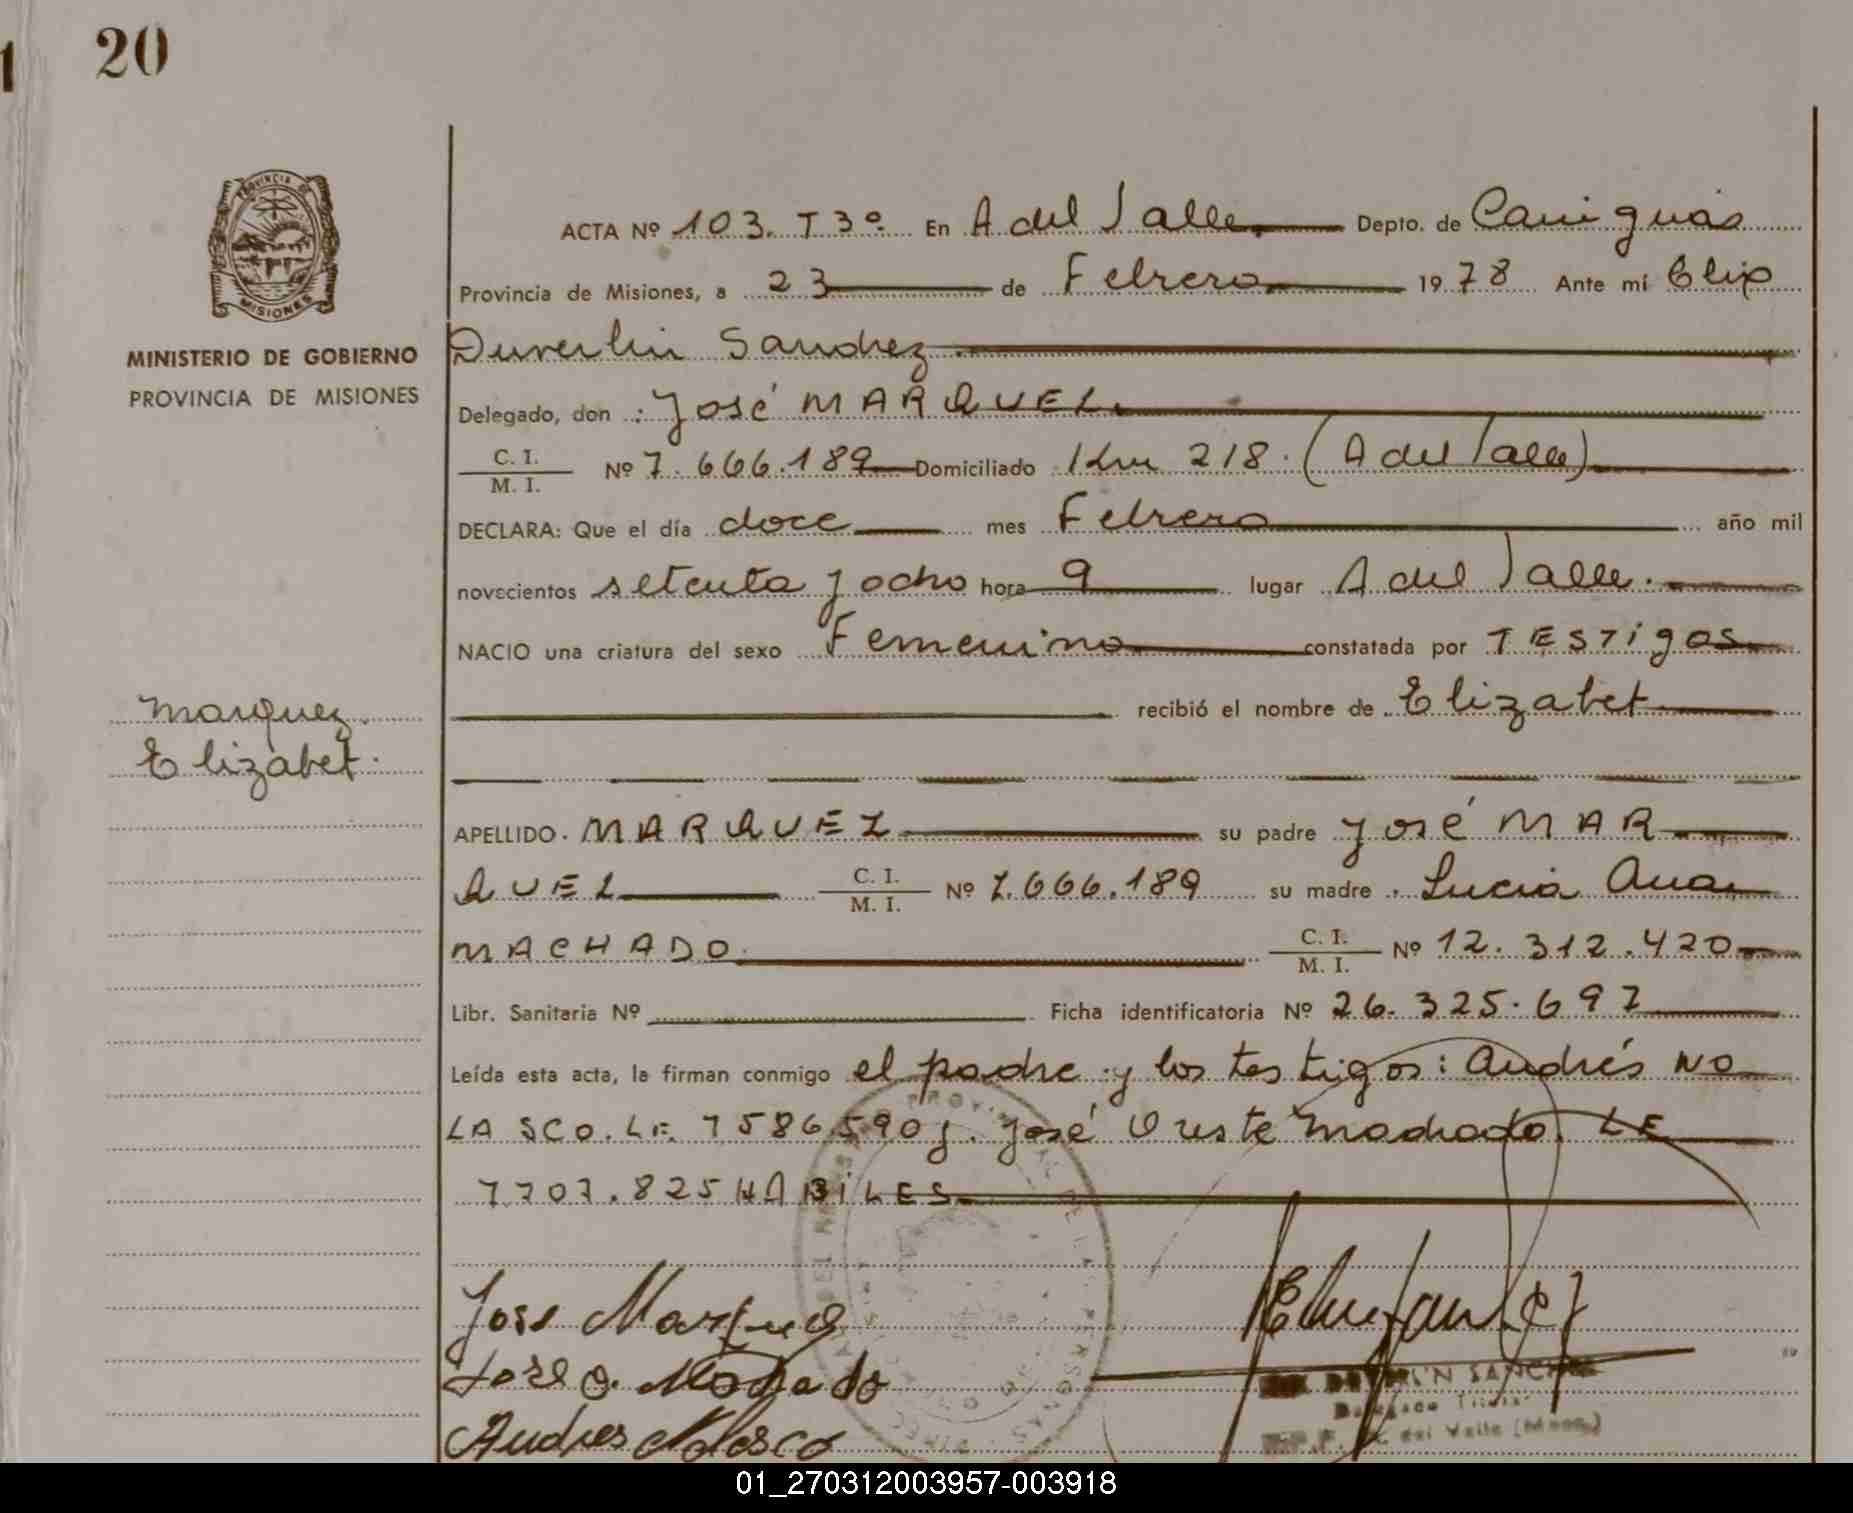 1
20
PROVINCIA DE
MISIONES
MINISTERIO DE GOBIERNO
PROVINCIA DE MISIONES
ACTA Nº 103. T 3º En A del Valle Depto. de Cainguás
Provincia de Misiones, a 23 de Febrero 1978 Ante mí Elix
Duverlin Sanchez
Delegado, don : José MARQUEZ
C. I.
M. I. Nº 7.666.189 Domiciliado Km 218. (A del Valle)
DECLARA: Que el día doce mes Febrero año mil
novecientos setenta y ocho hora 9 lugar A del Valle.
NACIO una criatura del sexo Femenino constatada por TESTigos
Marquez recibió el nombre de Elizabet
Elizabet.
APELLIDO. MARQUEZ su padre José MAR
QUEZ C. I. M. I. Nº 7.666.189 su madre Lucia Ana
MACHADO. C. I. M. I. Nº 12.312.420
Libr. Sanitaria Nº Ficha identificatoria Nº 26.325.697
Leída esta acta, la firman conmigo el padre y los testigos: Andrés NO
LASCO. LE. 7586590 y. José Oreste Machado. LE
7707.825 HABILES
Jose Marquez
Jose O. Machado
Andres Nolasco
DUVERLIN SANCHEZ
Delegado Titular
del Valle (Mnes.)
01_270312003957-003918